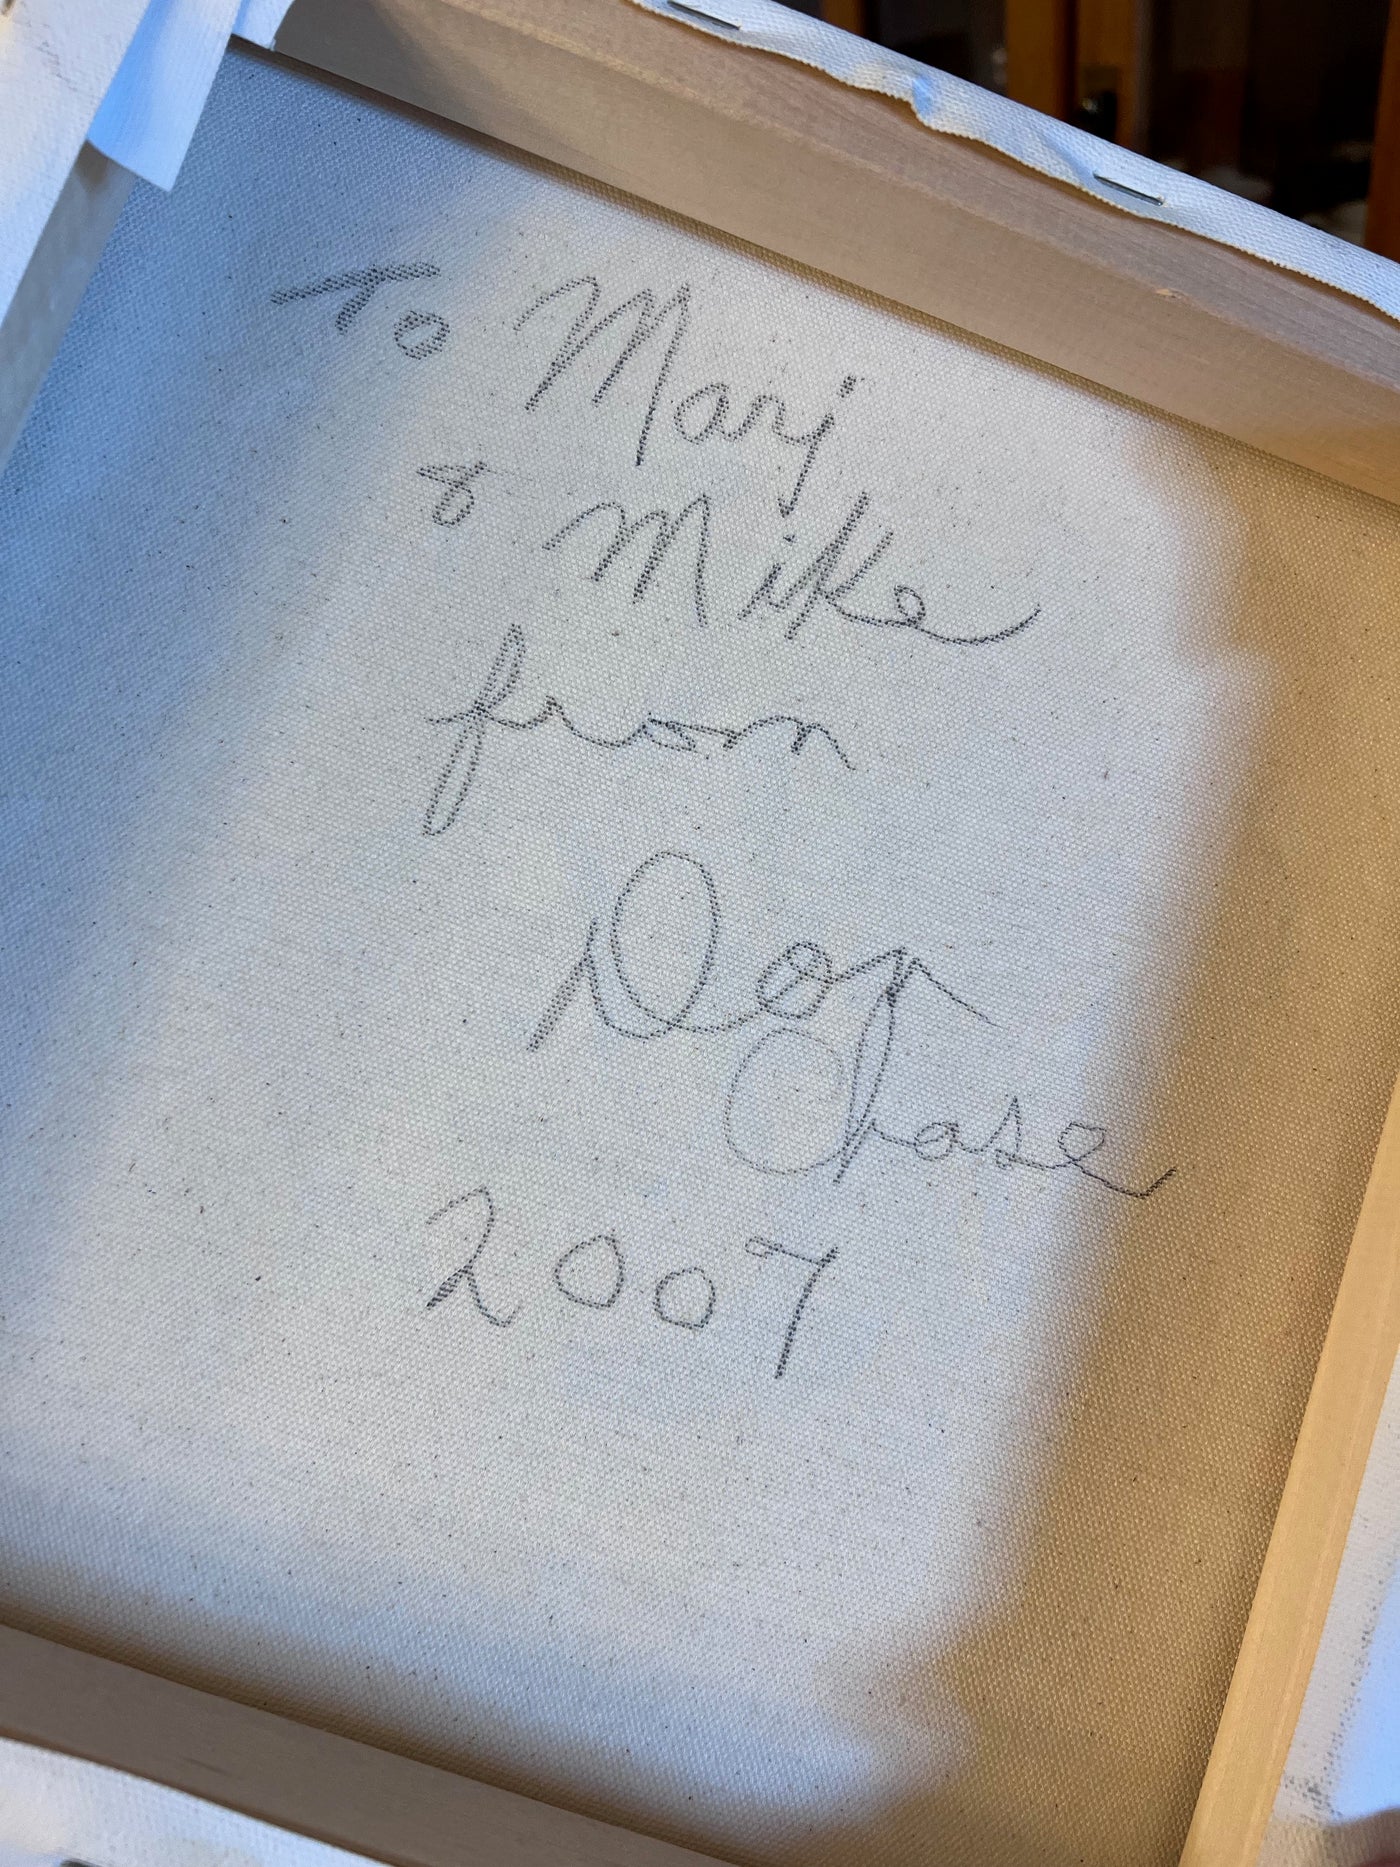 To Marj
& Mike
from
Dor
Chase
2007